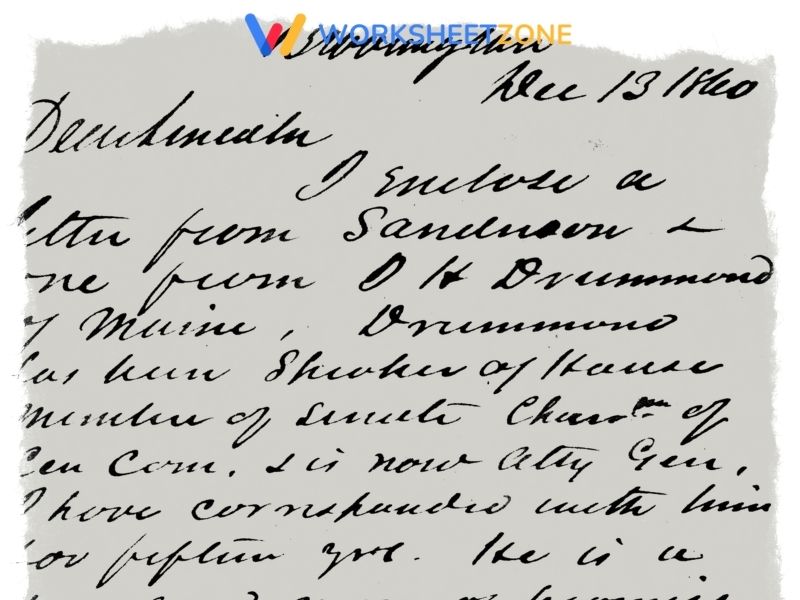 WORKSHEETZONE
Bloomington
Dec 13 1860
Dear Lincoln
I enclose a
letter from Sanderson &
one from J H Drummond
of Maine, Drummond
has been Speaker of House
Member of Senate Chairman of
Cen Com. & is now Atty Gen.
I have corresponded with him
for fifteen yrs. He is a